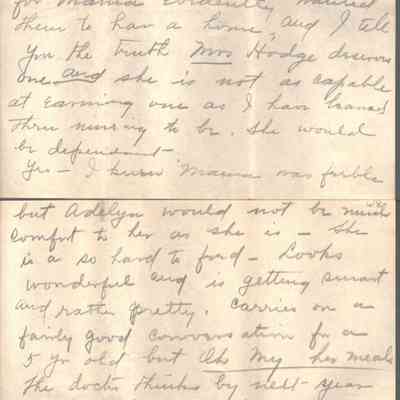 for Mama evidently wanted
them to have a home, and I tell
you the truth Mrs Hodge deserves
one and she is not as capable
at earning one as I have learned
thru nursing to be. She would
be dependent-
Yes - I knew Mama was feeble
but Adelyn would not be much
comfort to her as she is - She
is a so hard to feed - Looks
wonderful and is getting smart
and rather pretty. Carries on a
fairly good conversation for a
5 yr old but Oh My her meals
The doctor thinks by next year